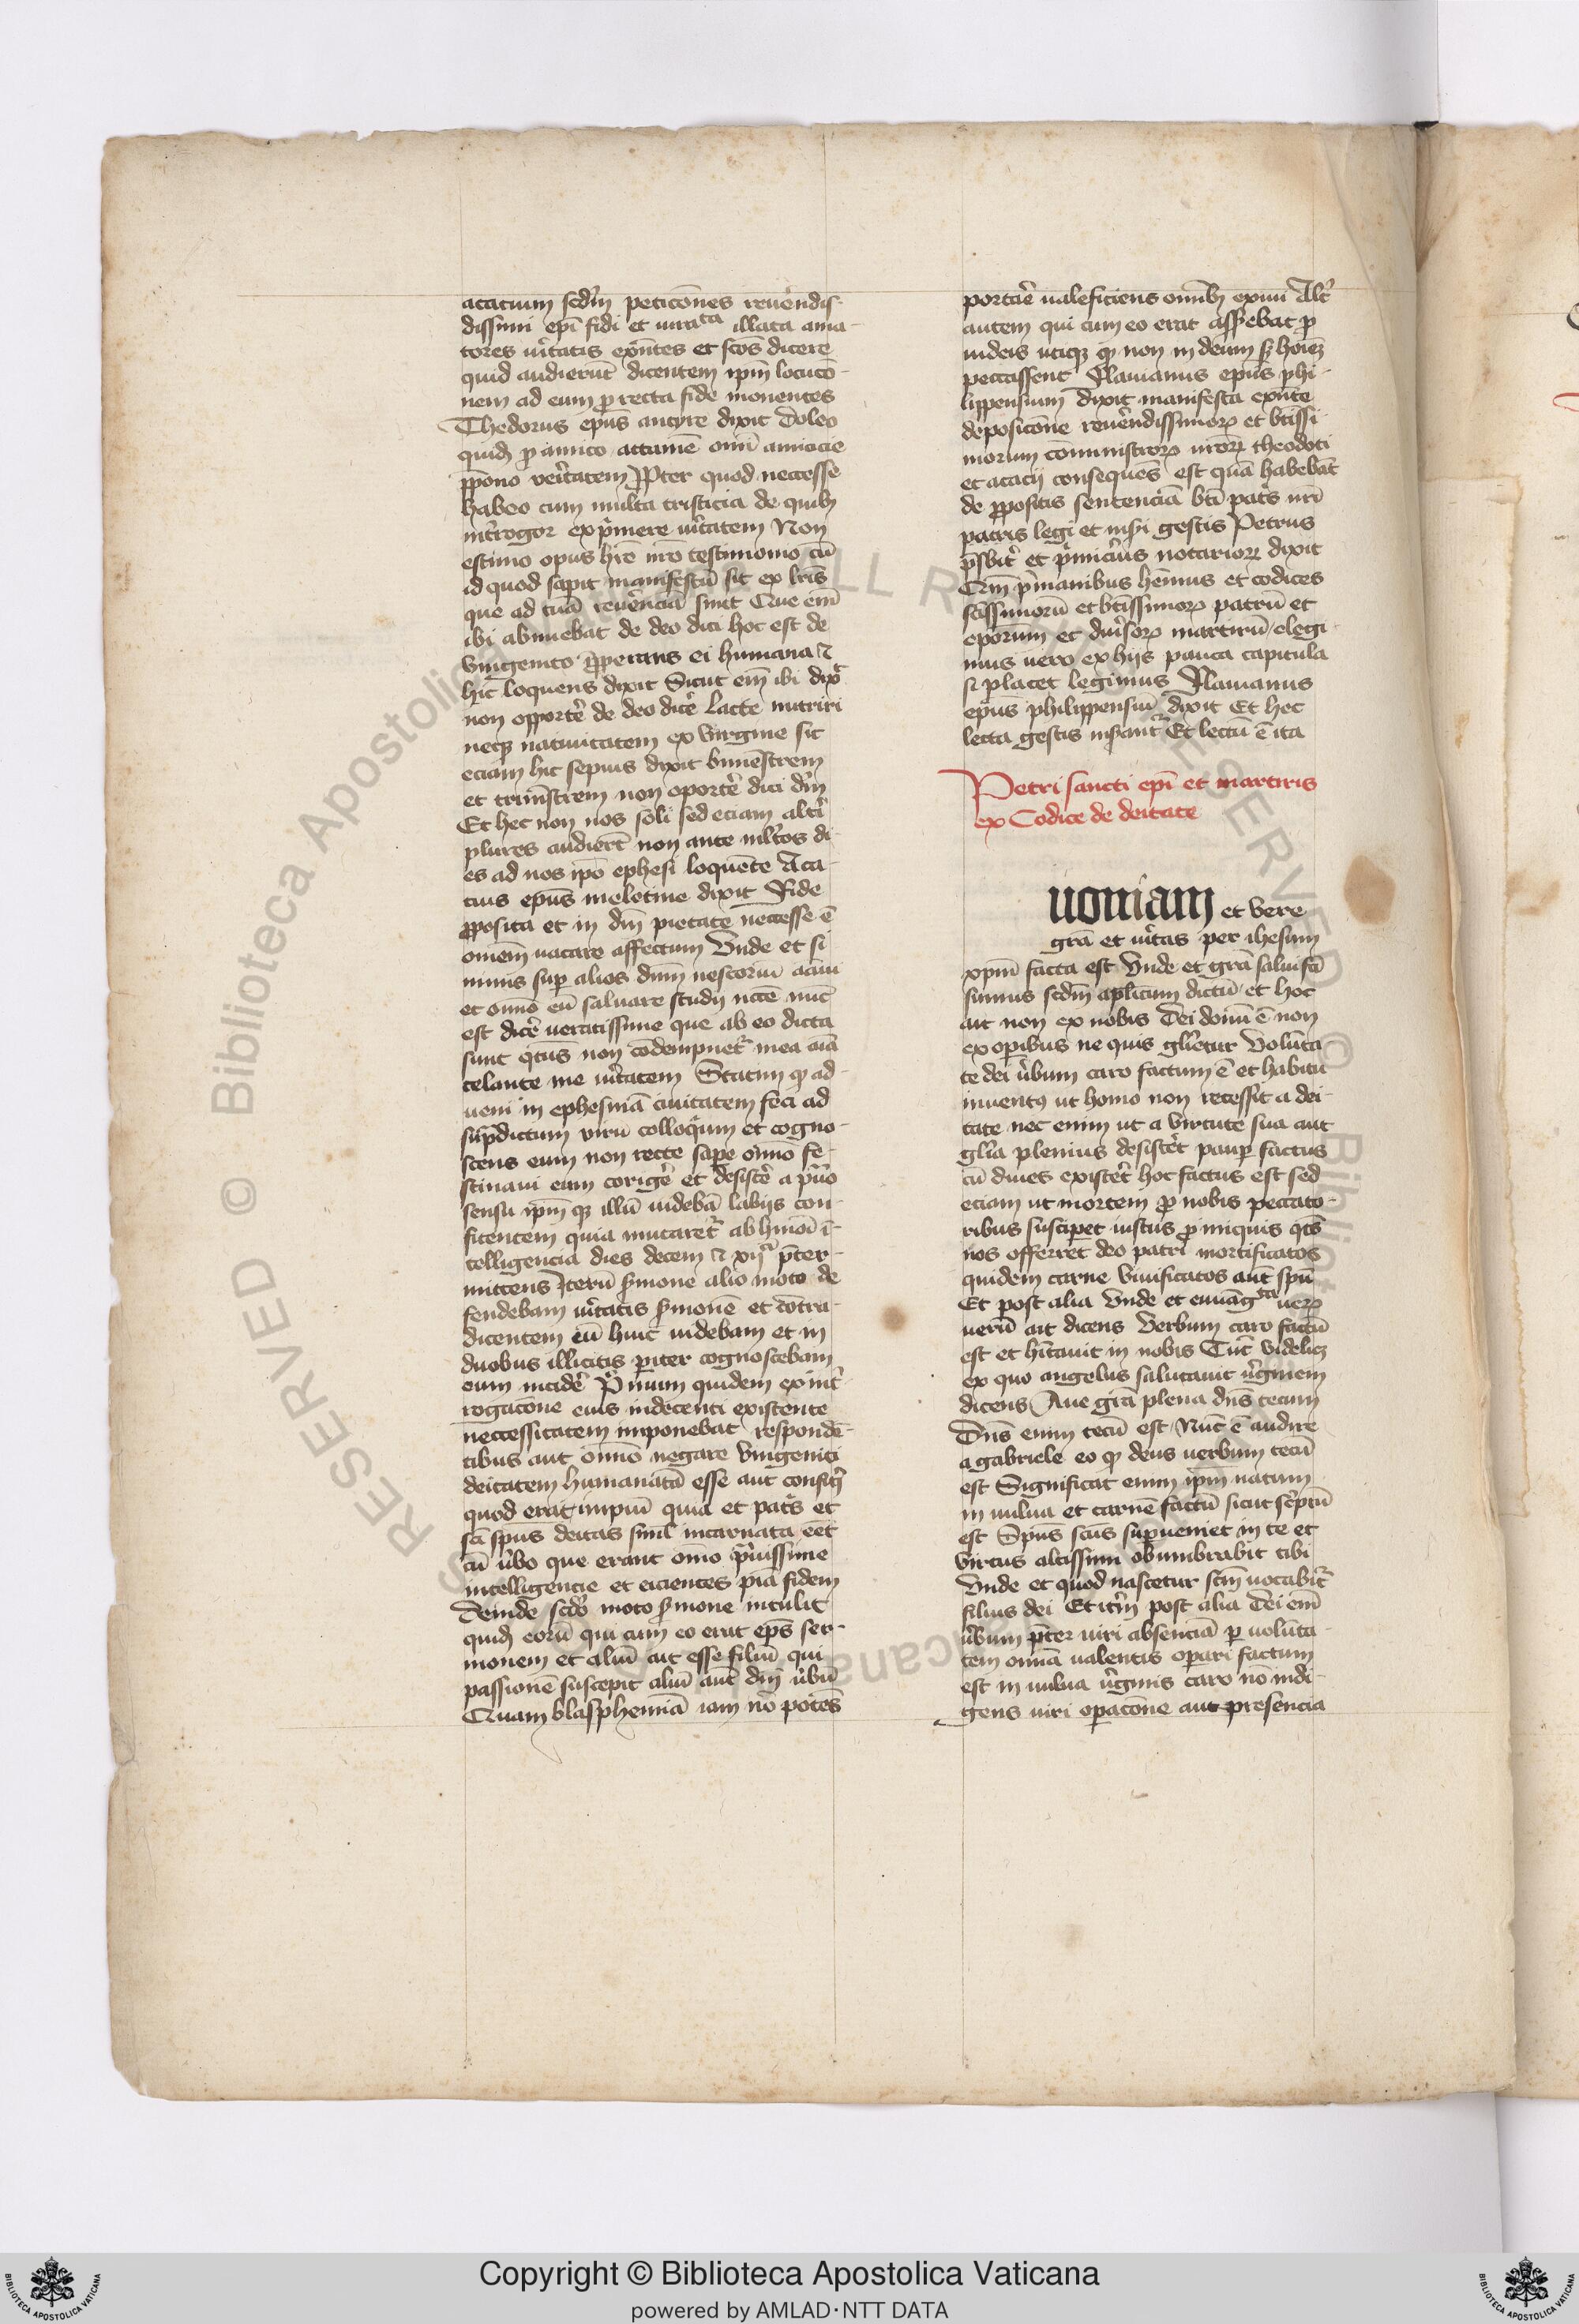 acatium scdm̄ peticōnes reuērendis-
dissimi ep̄i fidi et iurata illata ama-
tores ūitatis exn̄tes et scōs dicere
quid audierūt dicentem ip̄m locucō-
nem ad eum ꝓ recta fide monentes
Thedorus ep̄us ancyre dixit Doleo
quidē ꝓ amico attamē om̄i amicicie
p̄pono veritatem Ppter quod neccesse
habeo cum multa tristicia de quibꝫ
int̄rogor exp̄mere ūitatem Non
estimo opus hr̄e nr̄o testimonio cū
id quod sapit manifestū sit ex lr̄is
que ad tuā reuēnciā sunt Que em̄
ibi abnuebat de deo dici hoc est de
vnigenito ꝓperans ei humana ⁊
hic loquens dixit Sicut em̄ ibi dix̄
non opportē de deo dicē lacte nutriri
necꝫ natiuitatem ex virgine sic
eciam hic sepius dixit bimēstrem
et trimēstrem non oportē dici dm̄
Et hec non nos soli sed eciam altī
plures audierēt non ante mltōs di-
es ad nos ip̄o ephesi loquēte Aca-
cius ep̄us meletine dixit Fide
ꝓposita et in dm̄ pietate neccesse ē
omēm uacare affectum Vnde et si
nimis suꝑ alios dn̄m nestoriū amaui
et om̄o eū saluare studij nc̄ē nūc
est dicē ueracissime que ab eo dicta
sunt qtūs non cōdempnet᷑ mea aīa
celante me ūitatem Statim ꝙ ad-
ueni in ephesinā ciuitatem feci ad
sup̄dictum virū colloqūm et cogno-
scens eum non recte sapē om̄o fe-
stinaui eum corigē et desistē a p̄uo
sensu ip̄m qꝫ illū uidebā labijs con-
fitentem quia mutaret᷑ ab hmōi ī-
telligencia dies decem ⁊ xijᵃ p̄ter-
mittens Iterū smone alio moto de
fendebam ūitatis smonē et cōtra-
dicentem cū huic uidebam et in
duobus illicitis pariter cognoscebam
eum incidē Pmum quidem ex int̄-
rogacōne eius indecenti existente
neccessitatem imponebat respondē-
tibus aut om̄o negare vnigeniti
deitatem humanatā esse aut confitī
quod erat impiū quia et patīs et
sc̄i spūs deitas simł incarnata eēt
cū ūbo que erant om̄o p̄uissime
intelligencie et eicientes piā fidem
Deinde scdō moto smone intulit
quidē eorū qui cum eo erat ep̄s ser-
monem et aliū ait esse filiū qui
passionē suscepit aliū aūt dm̄ ūbū
Quam blasphemiā iam nō potēs
portāe ualeficiens omībꝫ exiui Alt̄
autem qui cum eo erat assēbat ꝓ
iudeis uticꝫ ꝙ non in deum sꝫ hoīeꝫ
peccassent Flauianus ep̄us phi-
lippensium dixit manifesta exn̄te
deposicōne reuēndissimoꝝ et bt̄issi-
morum cōministroꝝ nr̄oꝝ theodoti
et acacij consequēs est quā habebāt
de ꝓpositis sentenciā bt̄i patīs nr̄i
patris legi et inseri gestis Petrus
p̄sbit̄ et p̄miciūs notarioꝝ dixit
Qm̄ p̄ manibus hēmus et codices
sc̄issimorū et bt̄issimoꝝ patrū et
ep̄orum et diuīsoꝝ martirū elegi-
mus uero ex hijs pauca capitula
si placet legimus Flauianus
ep̄us philippensiū dixit Et hec
lecta gestis inserant᷑ Et lectū ē ita
Petri sancti ep̄i et martiris
ex Codice de deitate
uoniam et vere
grā et ūitas per ihesum
xp̄m facta est Vnde et grā saluifcī
sumus scdm̄ aplicum dictū et hoc
ait non ex nobis Dei donū ē non
ex oꝑibus ne quis glīetur Volūta
te dei ūbum caro factum ē et habitu
inuentꝰ ut homo non recessit a dei-
tate nec enim ut a virtute sua aut
glīa plenius desistēt pauꝑ factus
cū diues existēt hoc factus est sed
eciam ut mortem ꝓ nobis peccato-
ribus susciꝑet iustus ꝓ iniquis qtūs
nos offerret deo patri mortificatos
quidem carne viuificatos aūt spū
Et post alia Vnde et euuāgᵗᵃ ueroꝝ
uerū ait dicens Verbum caro factū
est et hītauit in nobis Tūc videlicꝫ
ex quo angelus salutauit ūginem
dicens Aue grā plena dn̄s tecum
Dn̄s enim tecū est Nūc ē audire
a gabriele eo ꝙ deus uerbum tecū
est Significat enim ip̄m natum
in uulua et carnē factū sicut scīptū
est Spūs scūs suꝑueniet in te et
virtus altissimi obumbrabit tibi
Vnde et quod nascetur scm̄ uocabit᷑
filius dei Et itm̄ post alia Dei em̄
ūbum p̄ter uiri absenciā ꝑ uolūta-
tem om̄ia ualentis oꝑari factum
est in uulua ūginis caro nō indi-
gens uiri oꝑacōne aut presencia
Copyright © Biblioteca Apostolica Vaticana
powered by AMLAD·NTT DATA